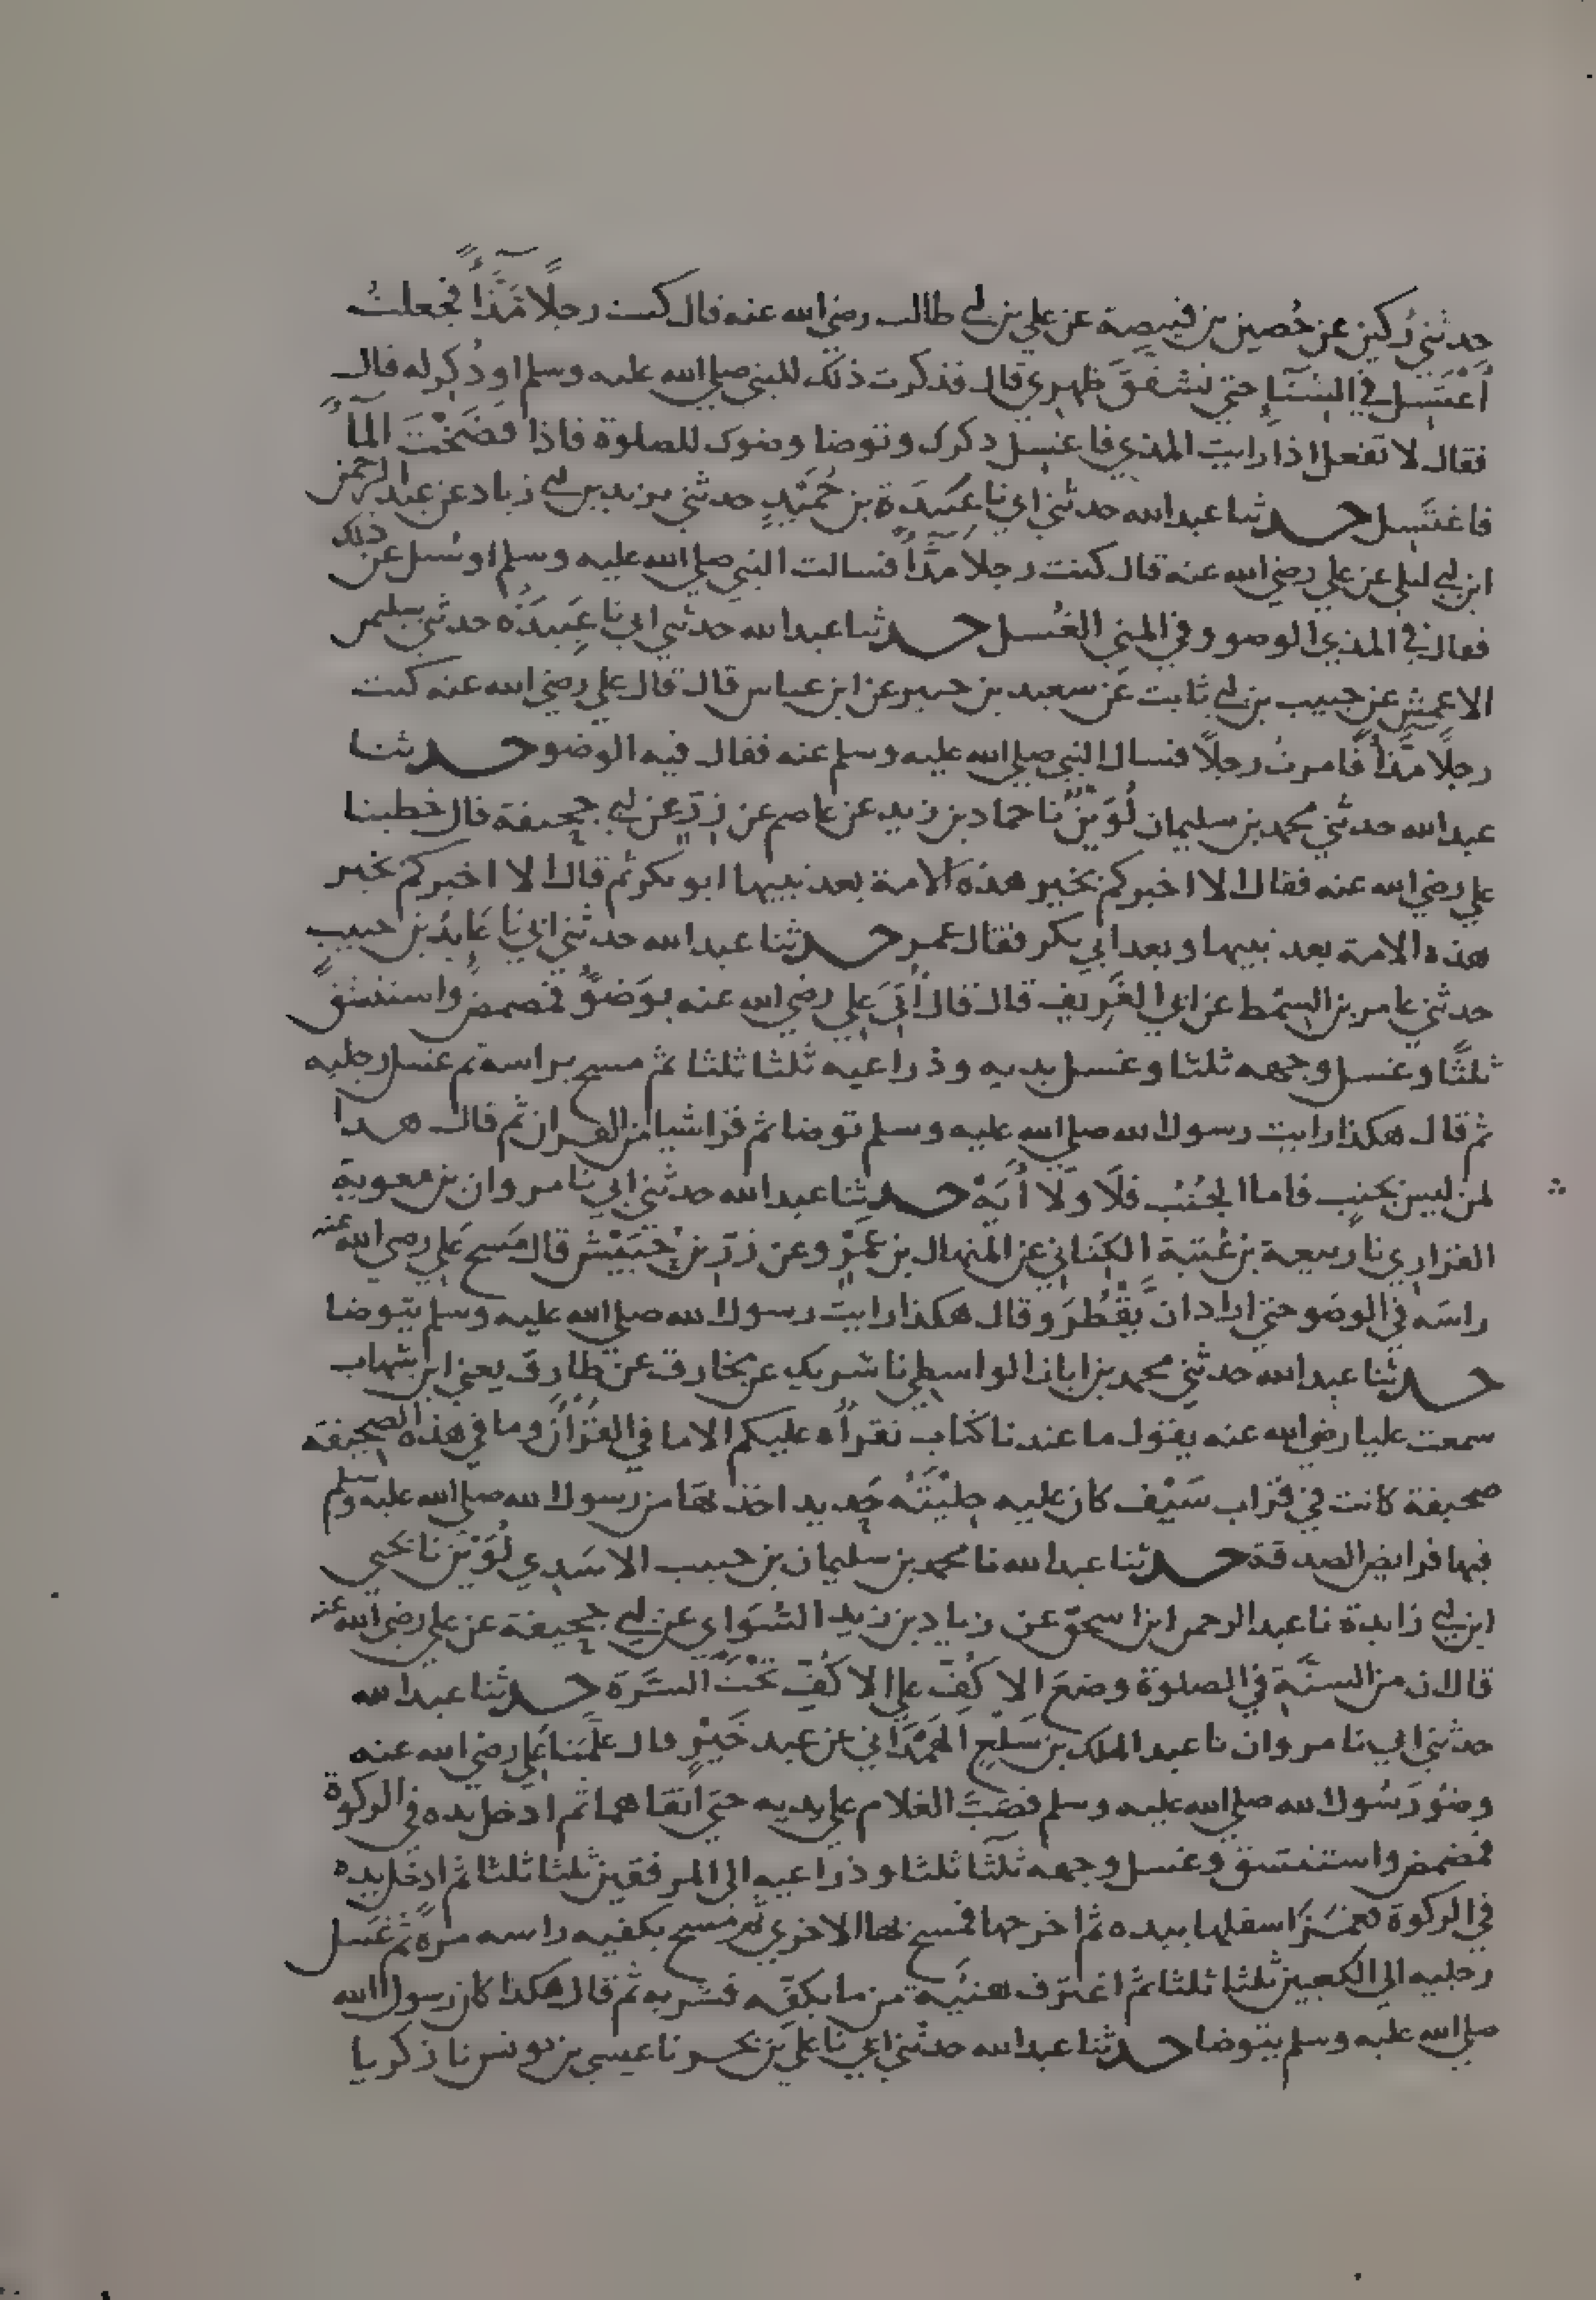 حدثني ركين عن حُصين بن قبيصة عن علي بن ابي طالب رضي الله عنه قال كنت رجلًا مَذَّآءً فجعلتُ
أغتسل في الشتآءِ حتي تشقق ظهري قال فذكرت ذلك للنبي صلي الله عليه وسلم او ذُكِر له قال
فقال لا تفعل اذا رايت المذي فاغسل ذكرك وتوضا وضوك للصلوة فاذا فضَخْتَ المآءَ
فاغتسل حدثنا عبد الله حدثني ابي نا عَبيدَة بن حُمَيْدٍ حدثني يزيد بن ابي زياد عن عبد الرحمن
ابن ابي ليلي عن علي رضي الله عنه قال كنت رجلا مذَّآءً فسالت النبي صلي الله عليه وسلم او سُئل عن ذلك
فقال في المذي الوضو وفي المني الغُسل حدثنا عبد الله حدثني ابي نا عَبِيدَةُ حدثني سليمن
الاعمش عن حبيب بن ابي ثابت عن سعيد بن جبير عن ابن عباس قال قال علي رضي الله عنه كنت
رجلًا مَذَّآءً فامرتُ رجلًا فسال النبي صلي الله عليه وسلم عنه فقال فيه الوضو حدثنا
عبد الله حدثني محمد بن سليمان لُوَيْنٌ نا حماد بن زيد عن عاصم عن زِرٍّ عن ابي جحيفة قال خطبنا
علي رضي الله عنه فقال الا اخبركم بخير هذه الامة بعد نبيها ابو بكر ثم قال الا اخبركم بخير
هذه الامة بعد نبيها وبعد ابي بكر فقال عمر حدثنا عبد الله حدثني ابي نا عَايِذُ بن حبيبٍ
حدثني عامر بن السِمْط عن ابي الغَرِيف قال قال أُتِيَ علي رضي الله عنه بوَضوءٍ فمضمض واستنشق
ثلثًا وغسل وجهه ثلثا وغسل يديه وذراعيه ثلثا ثلثا ثم مسح براسه ثم غسل رجليه
ثم قال هكذا رايت رسول الله صلي الله عليه وسلم توضا ثم قرا شيا من القران ثم قال هذا
لمن ليس بجنبٍ فاما الجُنُبُ فلَا ولَا أيَهْ حدثنا عبد الله حدثني ابي نا مروان بن معوية
الفزاري نا ربيعة بن عُتبة الكِناني عن المنهال بن عَمْرٍو عن زرّ بن حُبَيْش قال مَسح عَلي رضي الله عنه
راسَه في الوضَو حتي اراد ان يَّقْطُرَ وقال هكذا رايت رسول الله صلي الله عليه وسلم يتوضا
حدثنا عبد الله حدثني محمد بن ابان الواسطي نا شريك عن مخارق عن طارق يعني ابن شهاب
سمعت عليا رضي الله عنه يقول ما عندنا كتاب نقرأُه عليكم الا ما في القرأن وما في هذه الصحيفة
صحيفة كانت في قراب سَيْف كان عليه حِليَتُه حَديد اخذتها من رسول الله صلي الله عليه وسلم
فيها فرايض الصدقة حدثنا عبد الله نا محمد بن سليمان بن حبيب الاسَدِي لُوَيْنٌ نا يحيي
ابن ابي زايدة نا عبد الرحمن ابن اسحق عن زياد بن زيد السُوَاي عن ابي جحيفة عن علي رضي الله عنه
قال ان من السنَّةِ في الصلوة وضعَ الاكُفِّ علي الاكُفِّ تحْتَ السُرَّة حدثنا عبد الله
حدثني ابي نا مروان نا عبد الملك بن سَلْعٍ الهَمْدَاني عن عبد خَيْرٍ قال علَّمَنا عَلي رضي الله عنه
وضوَ رَسُول الله صلي الله عليه وسلم فصَبَّ الغلام علي يديه حتي انقاهما ثم ادخل يده في الركوة
فمضمض واستنشق وغسل وجهه ثلثًا ثلثا وذراعيه الي المرفقين ثلثا ثلثا ثم ادخل يده
في الركوة فغمَزَ اسفلها بيده ثم اخرجها فمسح بها الاخري ثم مسح بكفيه راسه مرةً ثم غسَل
رجليه الي الكعبين ثلثا ثلثا ثم اغترف هنيَّةً من ما بكفّه فشربه ثم قال هكذا كان رسول الله
صلي الله عليه وسلم يتوضا حدثنا عبد الله حدثني ابي نا علي بن بحر نا عيسي بن يونس نا زكريا